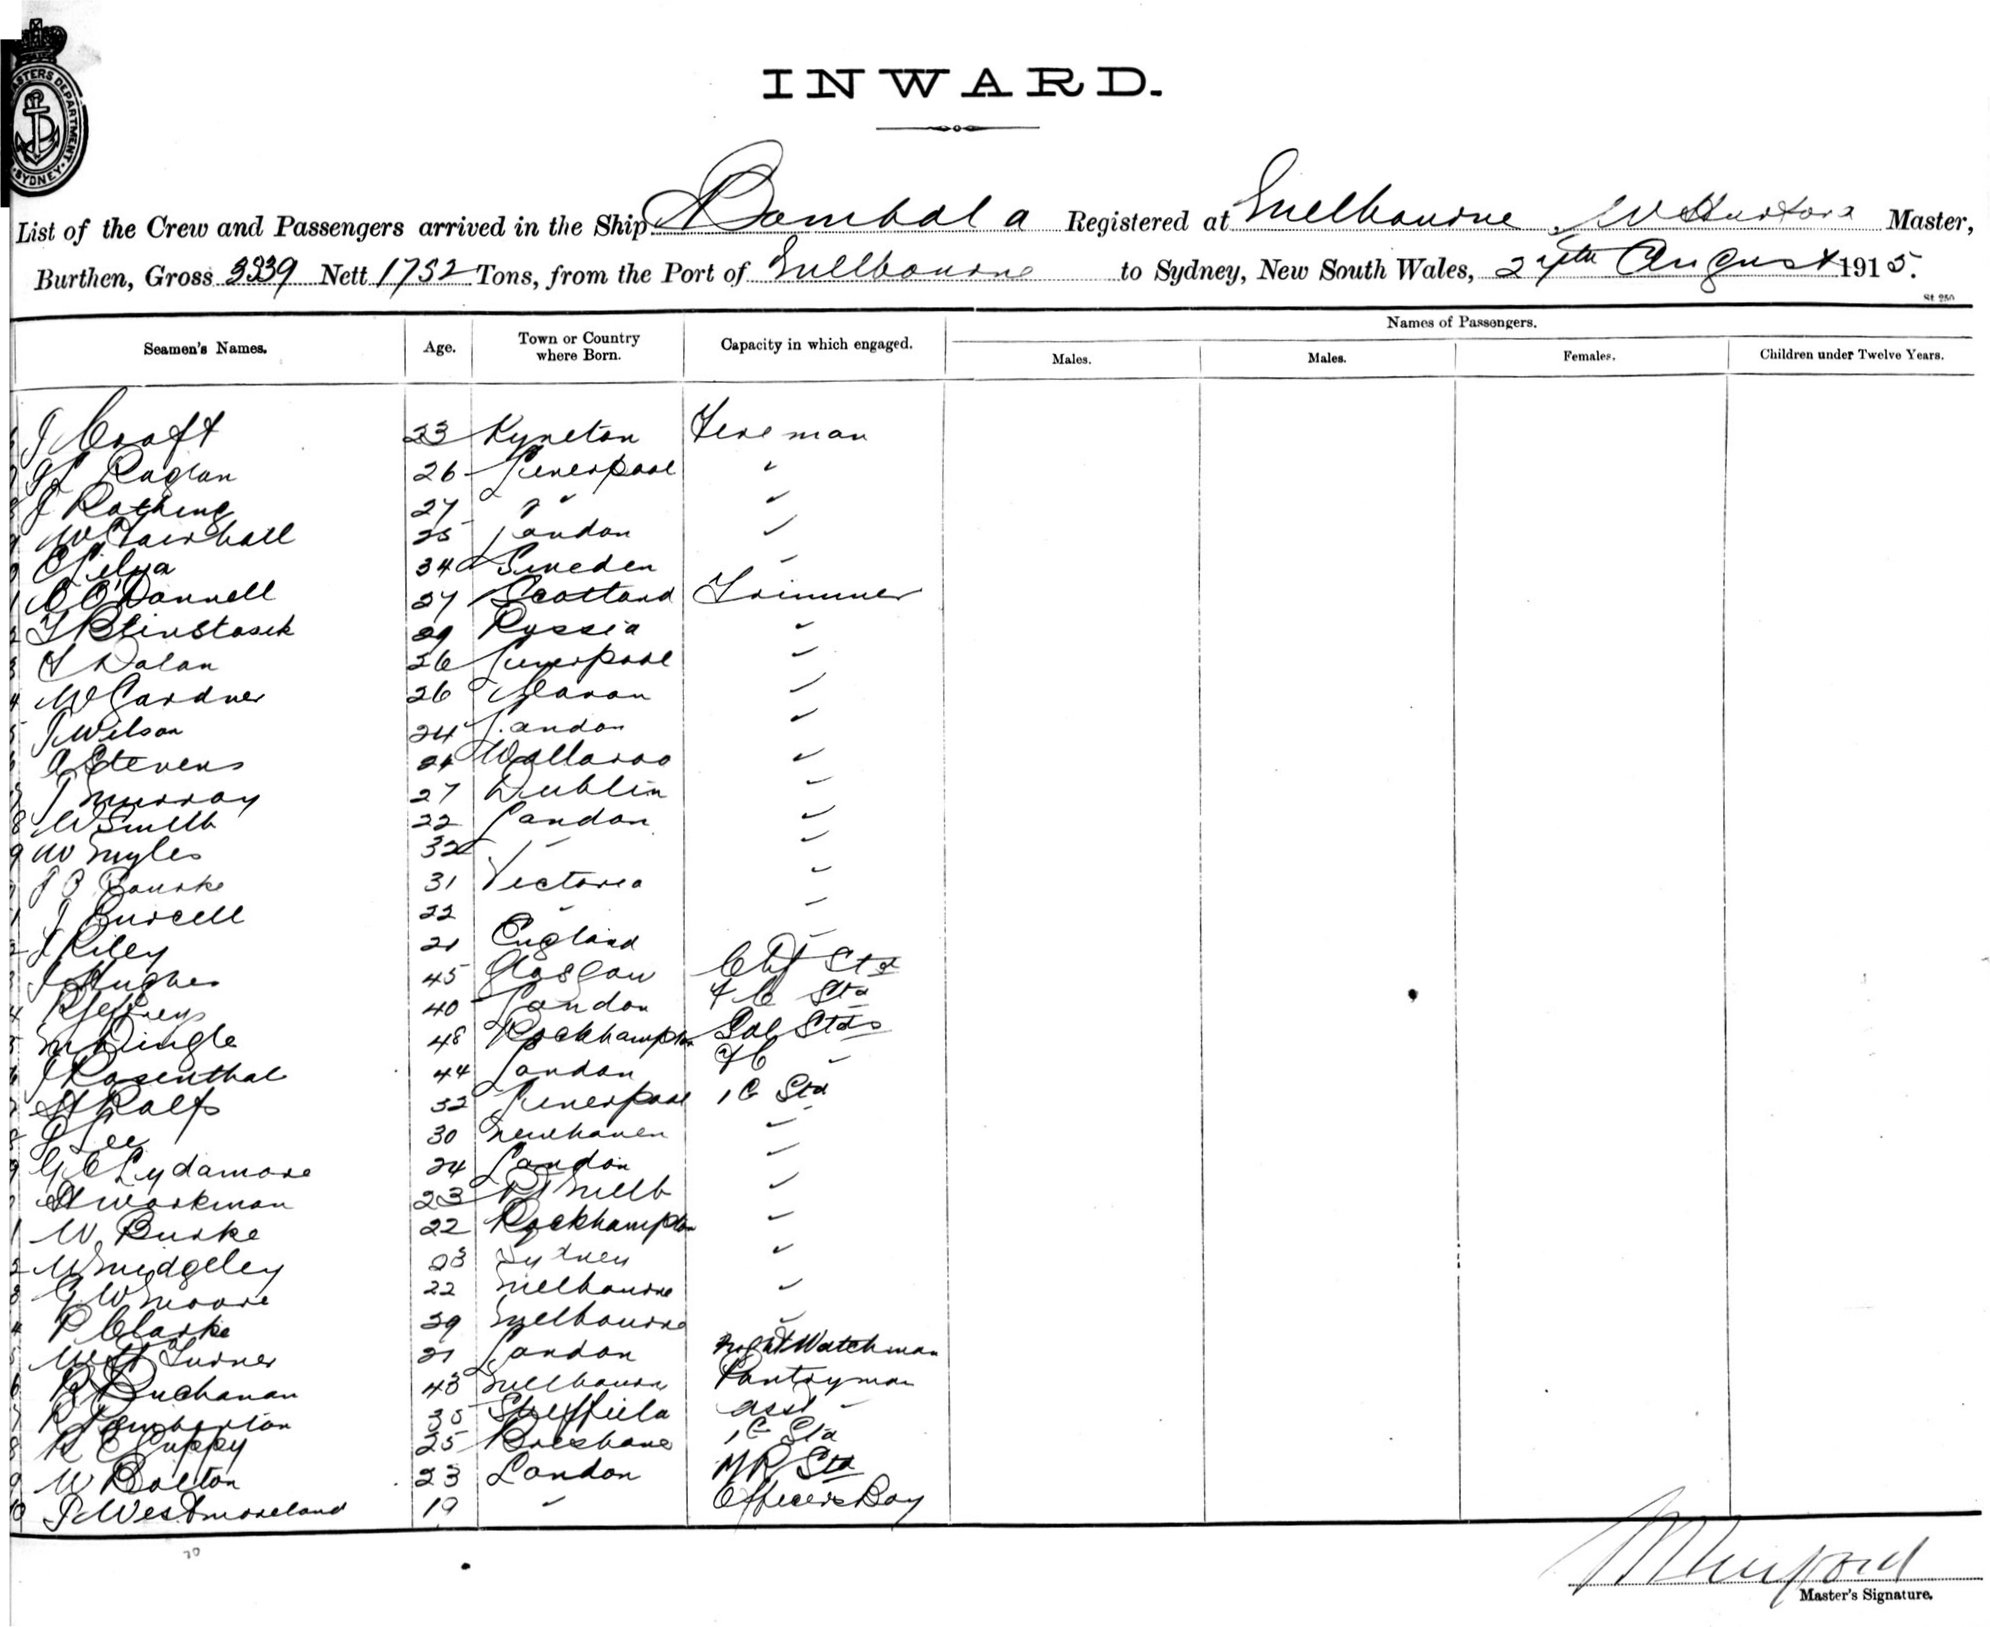 MASTERS DEPARTMENT
SYDNEY
INWARD.
List of the Crew and Passengers arrived in the Ship Bombala Registered at Melbourne, W Hurford Master,
Burthen, Gross 3239 Nett 1752 Tons, from the Port of Melbourne to Sydney, New South Wales, 27th August 1915.
St 250
Seamen's Names. Age. Town or Country where Born. Capacity in which engaged. Names of Passengers.
Males. Males. Females. Children under Twelve Years.
J Croft 23 Kyneton Fireman
Raglan 26 Liverpool "
J 27 " "
W Fairhall 25 London "
C Silya 34 Sweden "
O'Donnell 27 Scotland Trimmer
29 Russia "
Dolan 26 Liverpool "
W Gardner 26 "
J Wilson 24 London "
Stevens 21 Wallaroo "
J Murray 27 Dublin "
W Smith 22 London "
W Myles 32 " "
Bourke 31 Victoria "
J Purcell 22 " "
Riley 21 England "
J Hughes 45 Glasgow Chf Std
R Jeffreys 40 London FC Std
M Dingle 48 Rockhampton Stds
J Rosenthal 44 London "
H Ralfs 32 Liverpool 1 C Std
J Lee 30 Newhaven "
G C Lydamore 24 London "
H Workman 23 Pt Melb "
W Burke 22 Rockhampton "
W Midgeley 23 Sydney "
G W Moore 22 Melbourne "
P Clarke 39 Melbourne "
Turner 21 London Night Watchman
R Buchanan 43 Melbourne Pantryman
R Pemberton 35 Sheffield Asst "
R C Cuppy 25 Brisbane 1 C Std
W Bolton 23 London M R Std
10 J Westmoreland 19 " Officers Boy
W Hurford
Master's Signature.